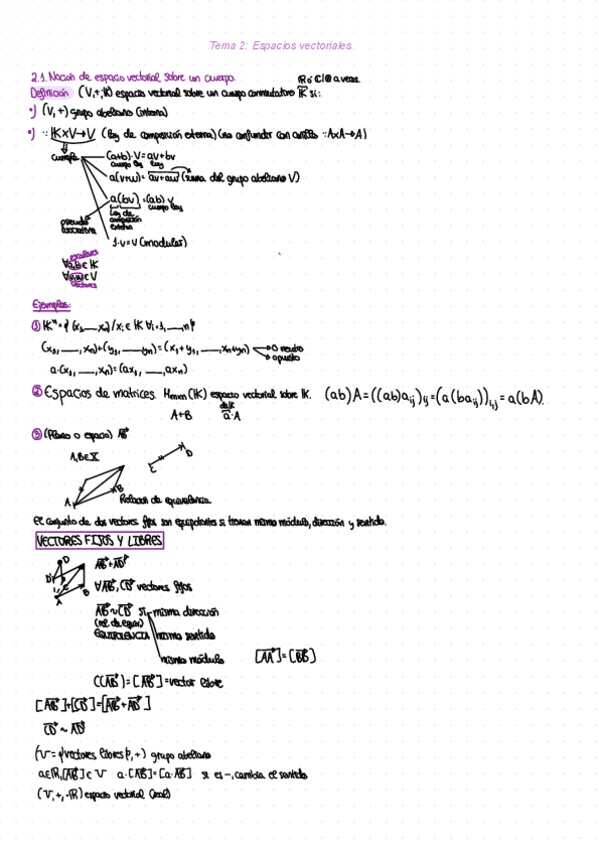 Tema 2: Espacios vectoriales
2.1. Noción de espacio vectorial sobre un cuerpo.
Definición (V,+,·K) espacio vectorial sobre un cuerpo conmutativo K si:
·) (V,+) grupo abeliano (interna)
·) ·: K×V→V (ley de composición externa) (no confundir con anillo ·:A×A→A)
cumple
(a+b)·v=av+bv
cuerpo ley ley
a(v+w)=av+aw (suma del grupo abeliano V)
a(bv)=(ab)v
ley de composición externa
cuerpo ley
pseudo asociativa
1·v=v (modular)
escalares
∀a,b∈K
∀v,w∈V
vectores
Ejemplos:
① Kⁿ={(x₁,__,xₙ)/xᵢ∈K ∀i=1,__,n}
(x₁,__,xₙ)+(y₁,__,yₙ)=(x₁+y₁,__,xₙ+yₙ)
0 neutro
opuesto
a·(x₁,__,xₙ)=(ax₁,__,axₙ)
② Espacios de matrices. Mₘₓₙ(K) espacio vectorial sobre K. (ab)A=((ab)aᵢⱼ)ᵢⱼ=(a(baᵢⱼ))ᵢ,ⱼ=a(bA).
A+B
a·A
③ (Plano o espacio) AB
A
B
C
D
Relación de equivalencia
El conjunto de dos vectores fijos son equipolentes si tienen mismo módulo, dirección y sentido.
VECTORES FIJOS Y LIBRES
AB+AD
∀AB, CD vectores fijos
AB~CD si misma dirección
EQUIVALENCIA mismo sentido
mismo módulo [AA]=[BB]
C(AB)=[AB]=vector libre
[AB]+[CD]=[AB+AD]
CD~AD
(V={vectores libres},+) grupo abeliano
a∈R,[AB]∈V a·[AB]=[a·AB] si es -, cambia el sentido
(V,+,·R) espacio vectorial (real)